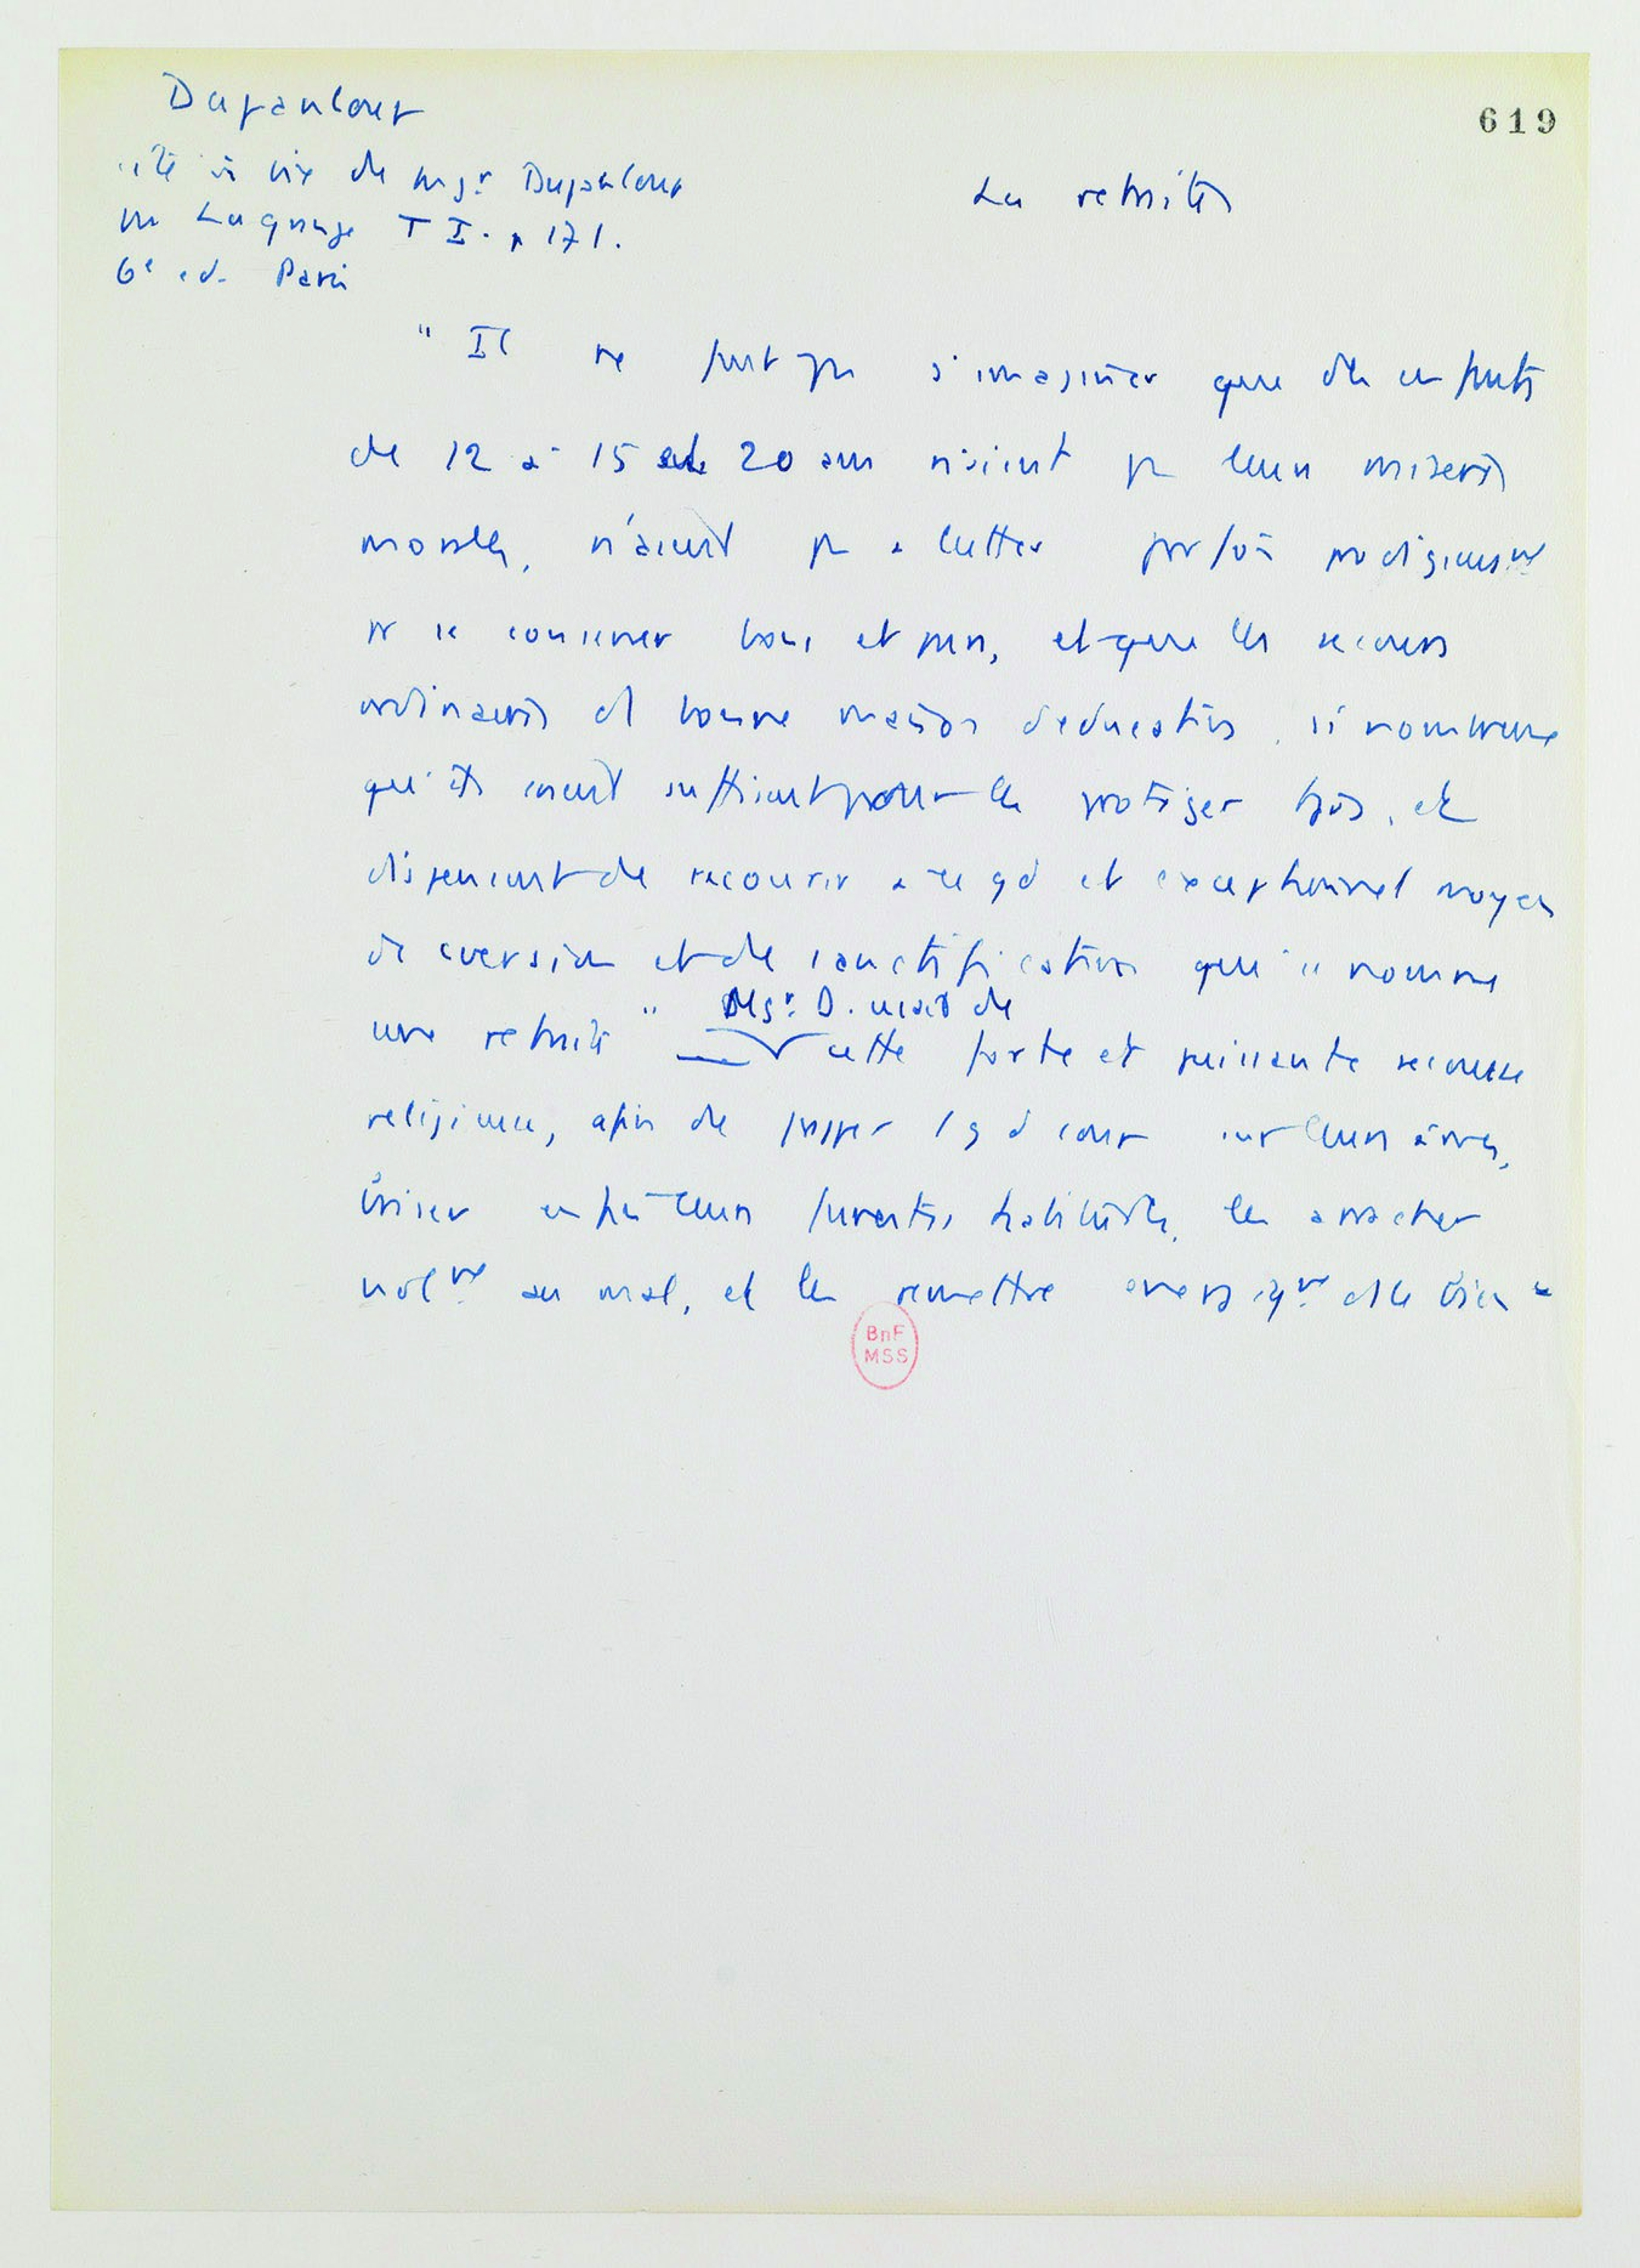 Dupanloup
619
cité in vie de Mgr Dupanloup
La retraite
par Lagrange T I. p 171.
6e ed. Paris
" Il ne faut pas s'imaginer que des enfants
de 12 à 15 et 20 ans n'aient pas leurs misères
morales, n'aient pas à lutter parfois prodigieusemt
pr se conserver bons et purs, et que les secours
ordinaires des bonnes maisons d'éducation, si nombreux
qu'ils soient suffisent pour les protéger tjrs, et
dispensent de recourir à ce gd et exceptionnel moyen
de cversion et de sanctification que l'on nomme
une retraite " Mgr. D. usait de
cette forte et puissante secousse
religieuse, afin de frapper 1 gd coup sur leurs âmes,
briser enfin leurs funestes habitudes, les arracher
violmt au mal, et les remettre énergiqmt ds le bien "
BnF
MSS